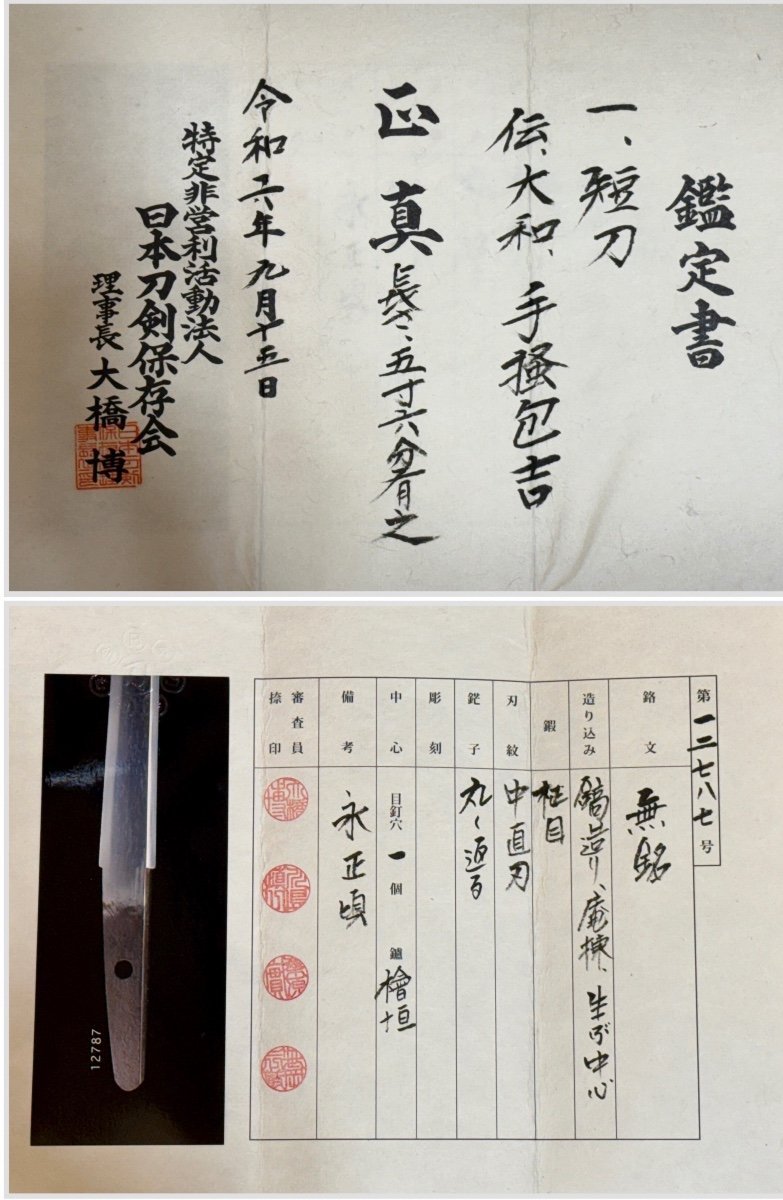 鑑定書
一、短刀
伝、大和、手掻包吉
正真 長サ、五寸六分有之
令和六年九月十五日
特定非営利活動法人
日本刀剣保存会
理事長 大橋博
第一二七八七号
銘文 無銘
造り込み 鎬造り、庵棟、生ぶ中心
鍛 柾目
刃紋 中直刃
鋩子 丸く返る
彫刻
中心 目釘穴 一個 鑢 檜垣
備考 永正頃
審査員捺印
12787